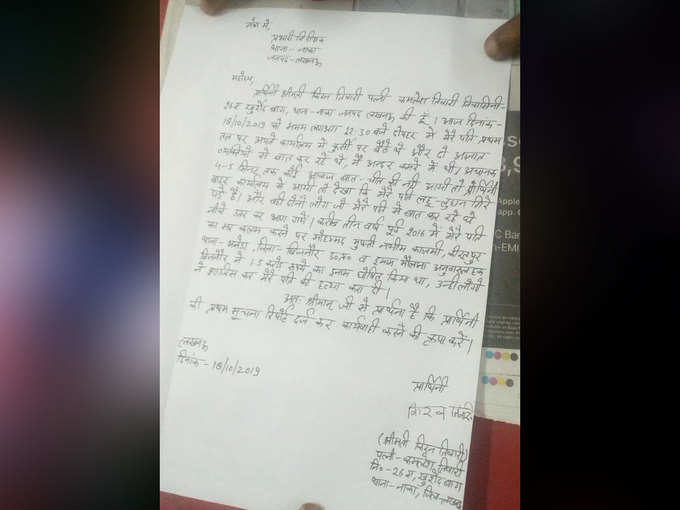 सेवा में,
प्रभारी निरीक्षक
थाना- नाका
जनपद- लखनऊ
महोदय,
प्रार्थिनी श्रीमती किरन तिवारी पत्नी कमलेश तिवारी निवासिनी-
26 ए खुर्शेद बाग, थाना-नाका जनपद लखनऊ की हूँ। आज दिनांक-
18/10/2019 को समय लगभग 12:30 बजे दोपहर में मेरे पति प्रथम
तल पर अपने कार्यालय में कुर्सी पर बैठे थे और दो अज्ञात
व्यक्तियों से बात कर रहे थे, मैं अन्दर कमरे में थी। अचानक
4-5 मिनट तक कोई आवाज बात-चीत की नहीं आयी तो प्रार्थिनी
बाहर कार्यालय में आयी तो देखा कि मेरे पति लहू-लुहान गिरे
पड़े हैं। और वही दोनों लोग जो मेरे पति से बात कर रहे थे
नीचे उतर कर भाग गये। करीब तीन वर्ष पूर्व 2016 में मेरे पति
का सर कलम करने पर मोहम्मद मुफ्ती नईम काजमी, कीरतपुर
थाना- जिला- बिजनौर उ०प्र० व इमाम मौलाना अनवारूल हक
बिजनौर ने 1.5 करोड़ रूपये का इनाम घोषित किया था, उन्हीं लोगों
ने साजिश कर मेरे पति की हत्या करा दी।
अतः श्रीमान् जी से प्रार्थना है कि प्रार्थिनी
की प्रथम सूचना रिपोर्ट दर्ज कर कार्यवाही करने की कृपा करें।
लखनऊ
दिनांक- 18/10/2019
प्रार्थिनी
किरन तिवारी
(श्रीमती किरन तिवारी)
पत्नी- कमलेश तिवारी
नि०- 26 ए, खुर्शेद बाग
थाना- नाका, जिला लखनऊ
Apple
app. C
C Ban
n-EMI